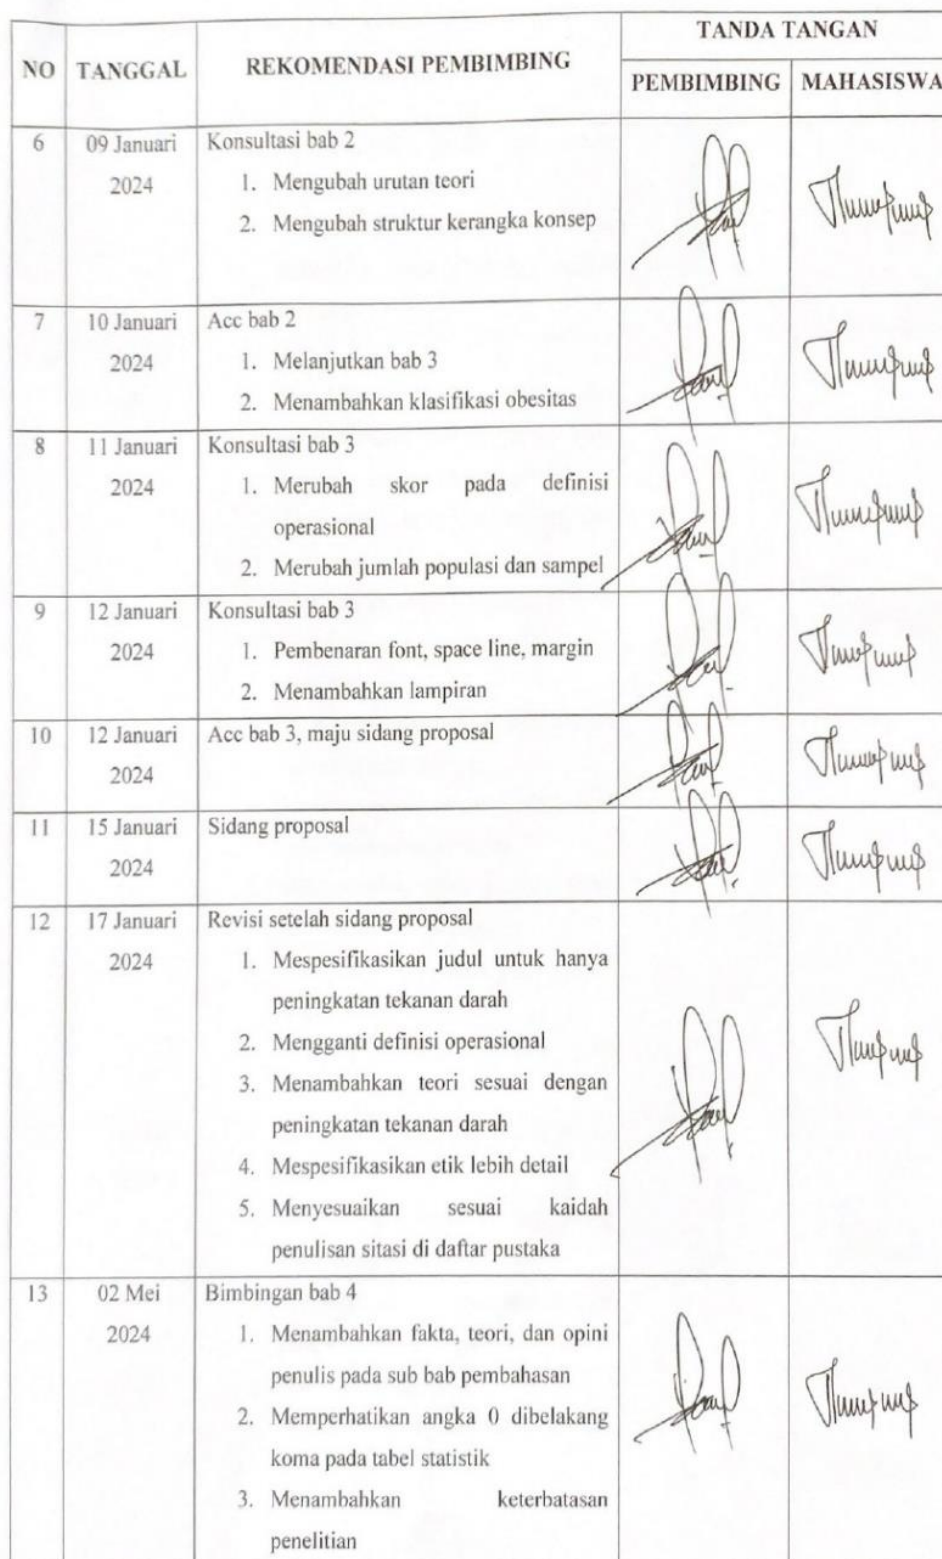 NO TANGGAL REKOMENDASI PEMBIMBING TANDA TANGAN
PEMBIMBING MAHASISWA
6 09 Januari Konsultasi bab 2
2024 1. Mengubah urutan teori
2. Mengubah struktur kerangka konsep
7 10 Januari Acc bab 2
2024 1. Melanjutkan bab 3
2. Menambahkan klasifikasi obesitas
8 11 Januari Konsultasi bab 3
2024 1. Merubah skor pada definisi
operasional
2. Merubah jumlah populasi dan sampel
9 12 Januari Konsultasi bab 3
2024 1. Pembenaran font, space line, margin
2. Menambahkan lampiran
10 12 Januari Acc bab 3, maju sidang proposal
2024
11 15 Januari Sidang proposal
2024
12 17 Januari Revisi setelah sidang proposal
2024 1. Mespesifikasikan judul untuk hanya
peningkatan tekanan darah
2. Mengganti definisi operasional
3. Menambahkan teori sesuai dengan
peningkatan tekanan darah
4. Mespesifikasikan etik lebih detail
5. Menyesuaikan sesuai kaidah
penulisan sitasi di daftar pustaka
13 02 Mei Bimbingan bab 4
2024 1. Menambahkan fakta, teori, dan opini
penulis pada sub bab pembahasan
2. Memperhatikan angka 0 dibelakang
koma pada tabel statistik
3. Menambahkan keterbatasan
penelitian